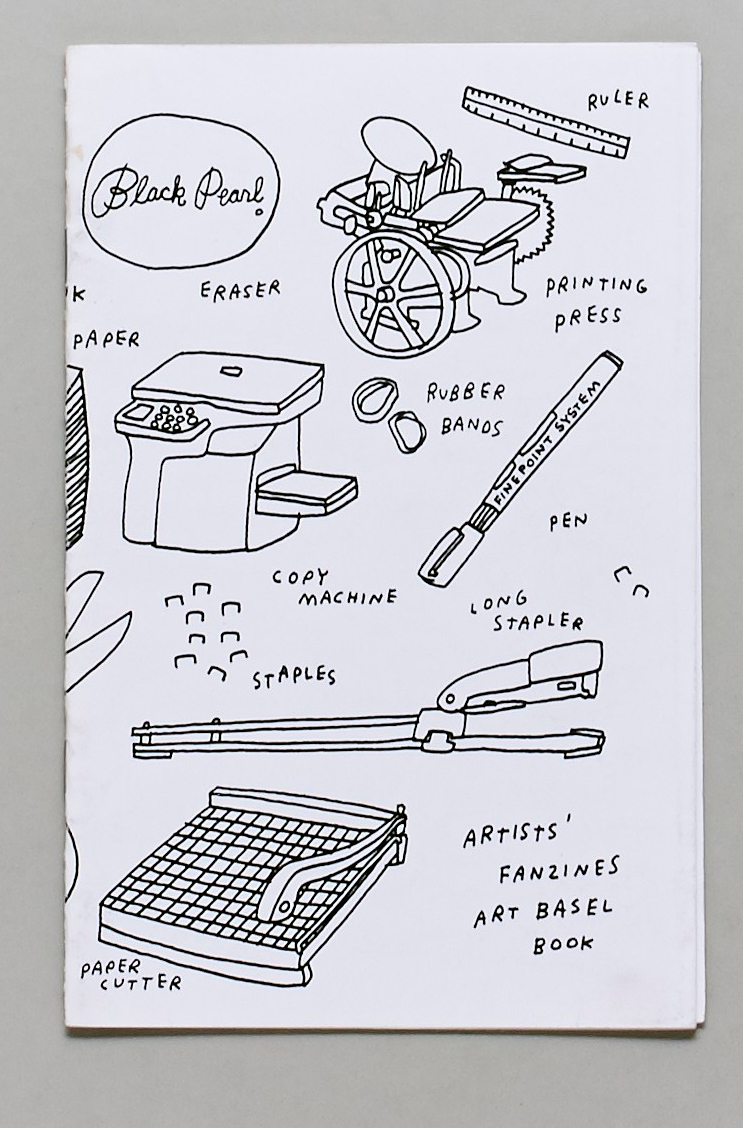 RULER
Black Pearl
ERASER
PRINTING
PRESS
K
PAPER
RUBBER
BANDS
FINEPOINT SYSTEM
PEN
COPY
MACHINE
LONG
STAPLER
STAPLES
ARTISTS'
FANZINES
ART BASEL
BOOK
PAPER
CUTTER